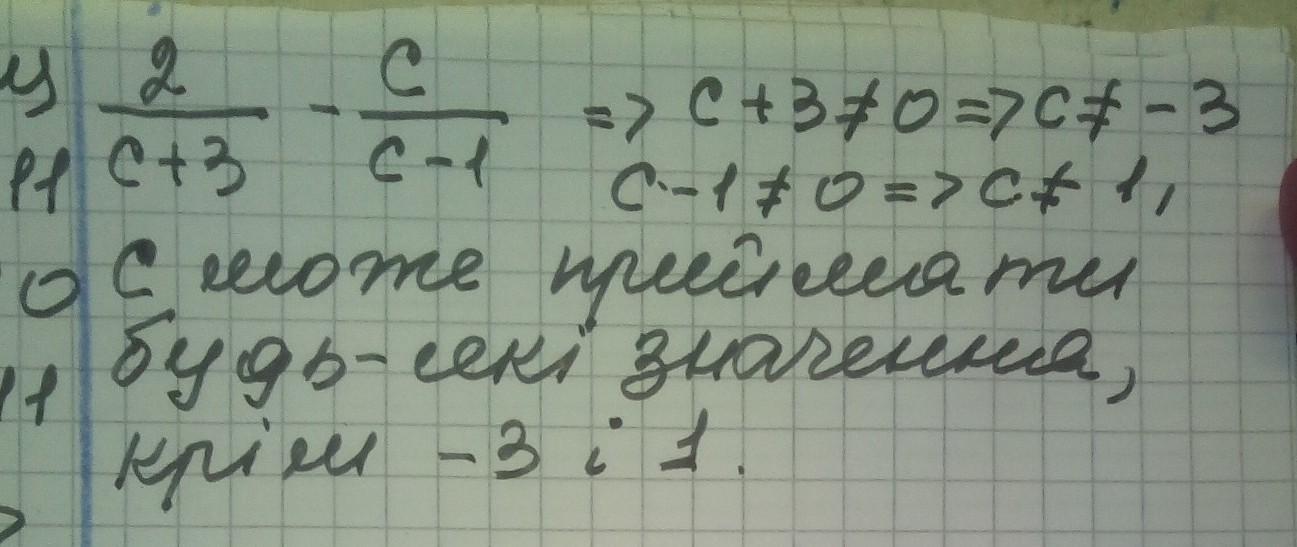 ц 2/(c+3) - c/(c-1) => c+3≠0 => c≠-3
н c-1≠0 => c≠1,
о с може приймати
н будь-які значення,
крім -3 і 1.